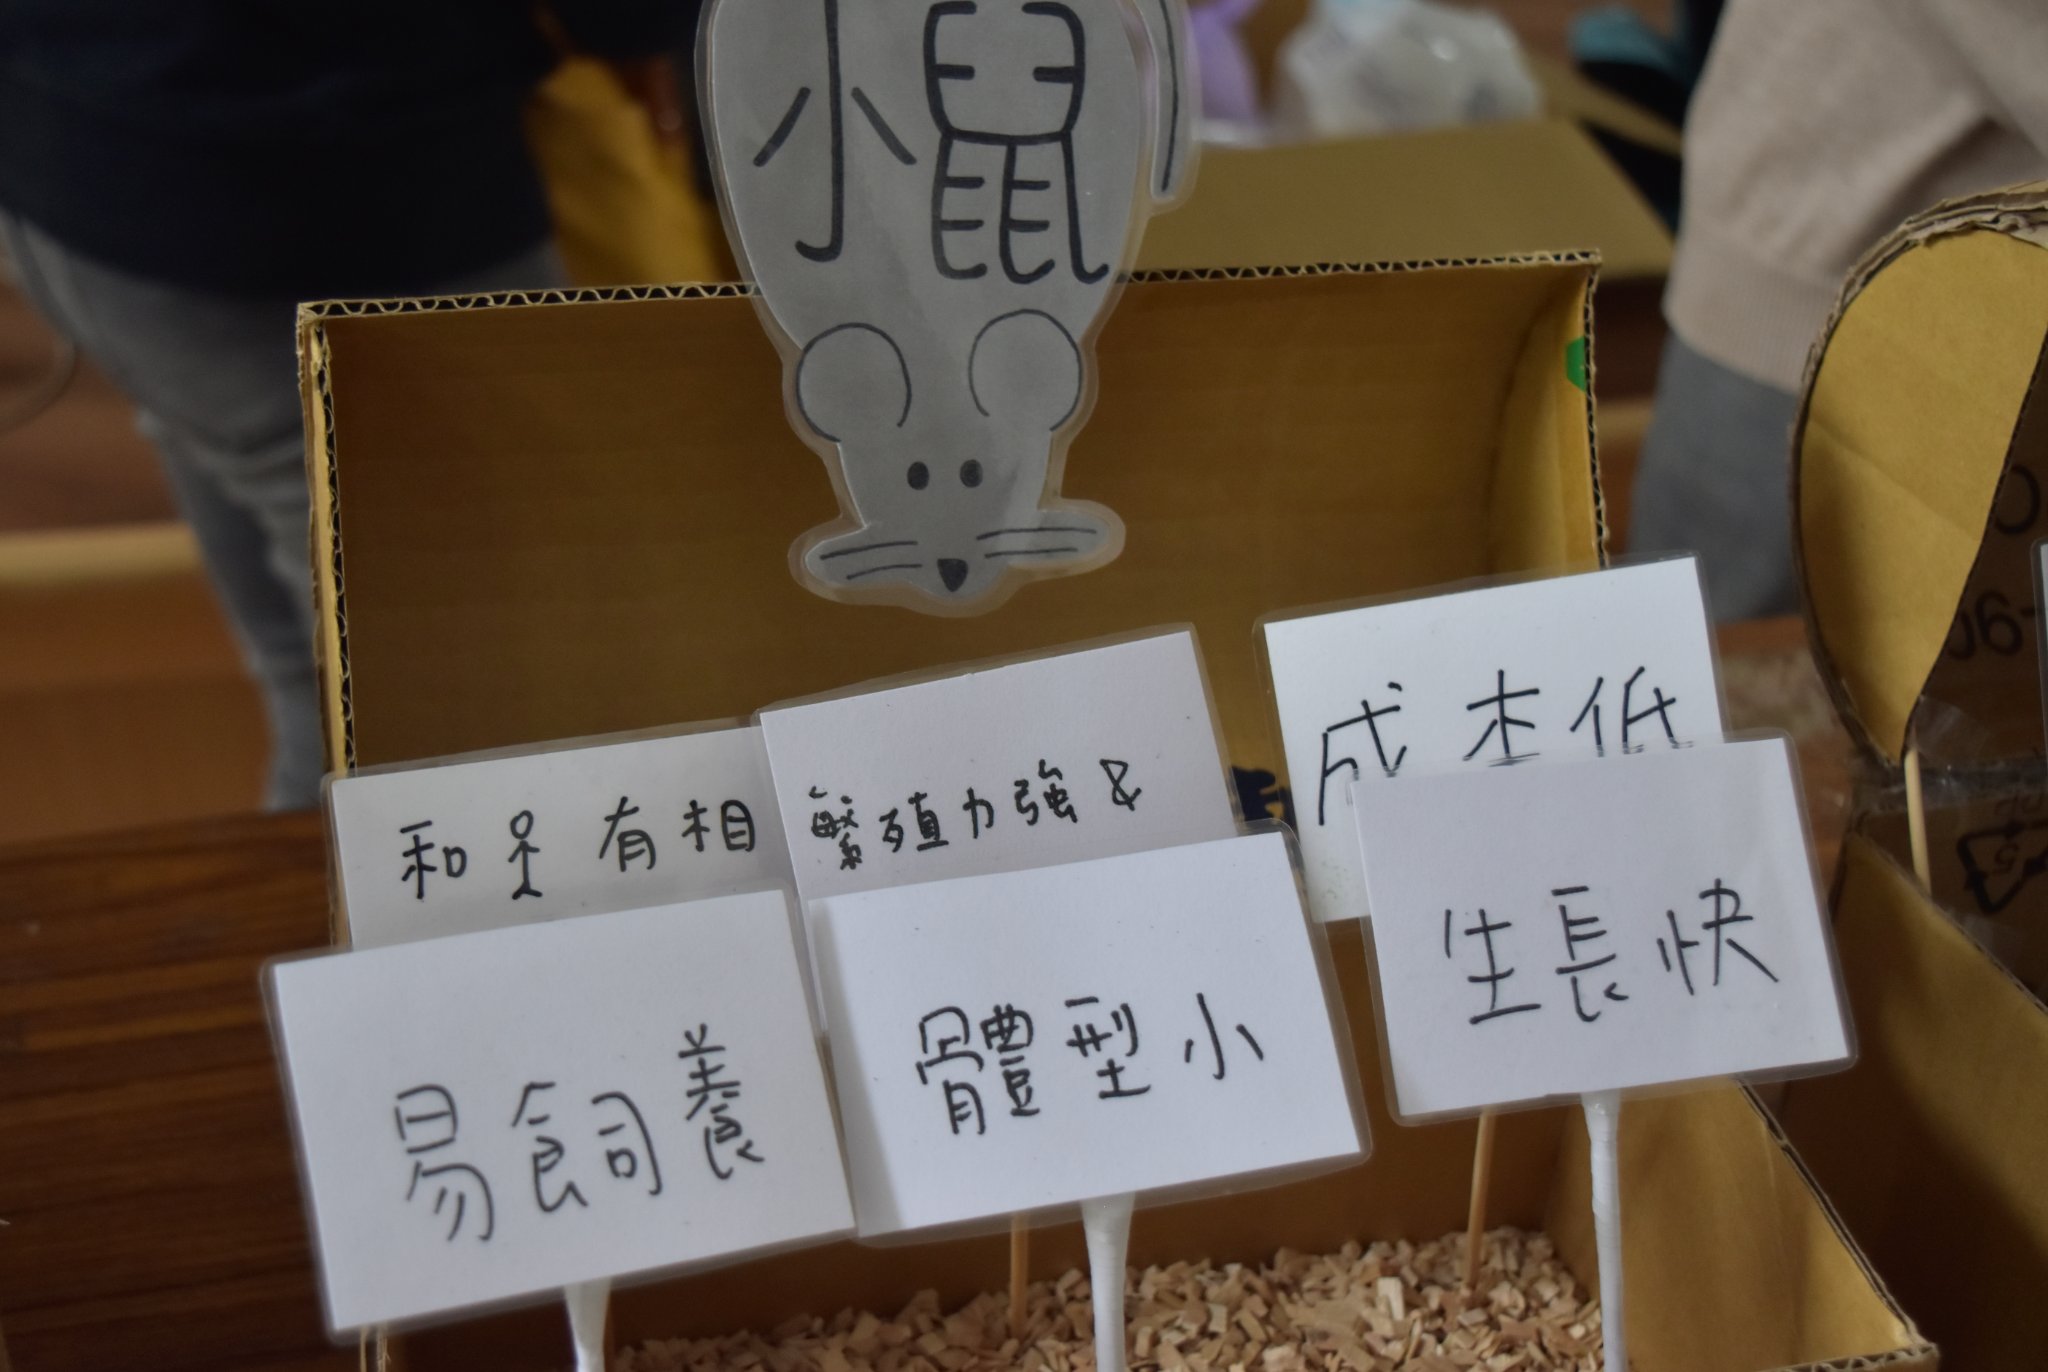 小鼠
和 有相
繁殖力強&
成本低
易飼養
體型小
生長快